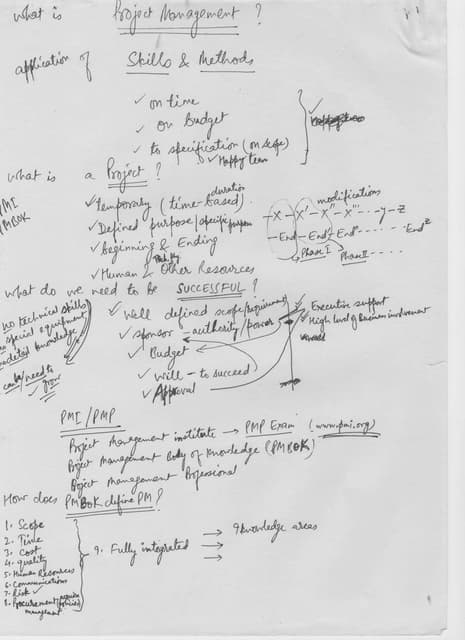 what is Project Management ?
application of Skills & Methods
✓ on time
✓ on Budget
✓ to specification (on scope)
✓ Happy team
what is a Project ?
PMI
PMBOK
✓ temporary (time-based) duration
✓ Defined purpose/specific
✓ Beginning & Ending
✓ Human & Other Resources
modifications
-X-X'-X''-X'''----y-Z
-End-End'-End''-----End^Z
Phase I Phase II -----
what do we need to be SUCCESSFUL ?
no technical skills
special equipment
knowledge
can be/need to
✓ grow
✓ Well defined scope/
✓ sponsor - authority/power
✓ Budget
✓ will - to succeed
✓ Approval
✓ Executive support
✓ High level of Business involvement
PMI/PMP
Project Management institute → PMP Exam (www.pmi.org)
Project Management Body of Knowledge (PMBOK)
Project Management Professional
How does PMBOK define PM ?
1. Scope
2. Time
3. Cost
4. Quality
5. Human Resources
6. Communications
7. Risk ✓
8. Procurement (policies)
management
9. Fully integrated
→ 9 knowledge areas
→
→